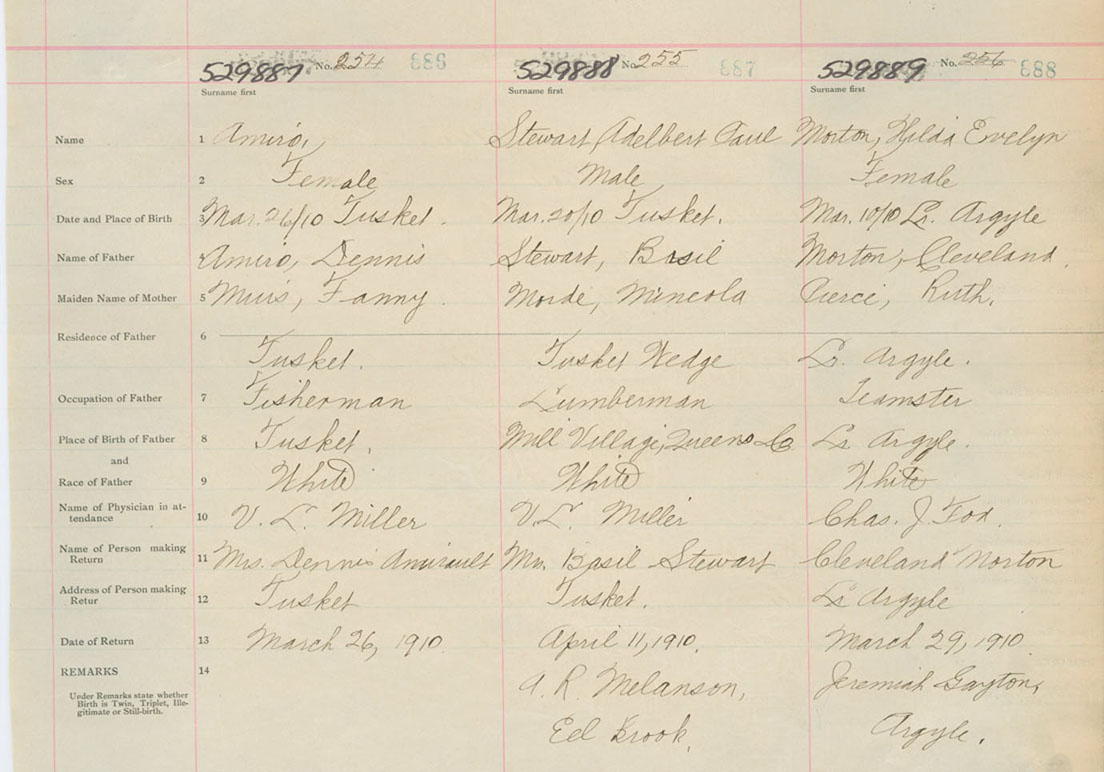 529887 No. 254 886 529888 No. 255 887 529889 No. 256 888
Surname first Surname first Surname first
Name 1 Amiro, Stewart, Adelbert Paul Morton, Hilda Evelyn
Sex 2 Female Male Female
Date and Place of Birth 3 Mar. 26/10 Tusket. Mar. 20/10 Tusket. Mar. 10/10 Lr. Argyle
Name of Father Amiro, Dennis Stewart, Basil Morton, Cleveland.
Maiden Name of Mother 5 Muis, Fanny. Morde, Mineola Pierci, Ruth.
Residence of Father 6
Tusket. Tusket Wedge Lr. Argyle.
Occupation of Father 7 Fisherman Lumberman Teamster
Place of Birth of Father 8 Tusket. Mill Village, Queens Co Lr Argyle.
and
Race of Father 9 White White White
Name of Physician in at-
tendance 10 V. L. Miller V. L. Miller Chas. J. Fox.
Name of Person making
Return 11 Mrs. Dennis Amirault Mrs. Basil Stewart Cleveland Morton
Address of Person making
Retur 12 Tusket Tusket. Lr Argyle
Date of Return 13 March 26, 1910. April 11, 1910. March 29, 1910
REMARKS 14
Under Remarks state whether
Birth is Twin, Triplet, Ille-
gitimate or Still-birth.
A. R. Melanson, Jeremiah Gayton,
Eel Brook. Argyle.